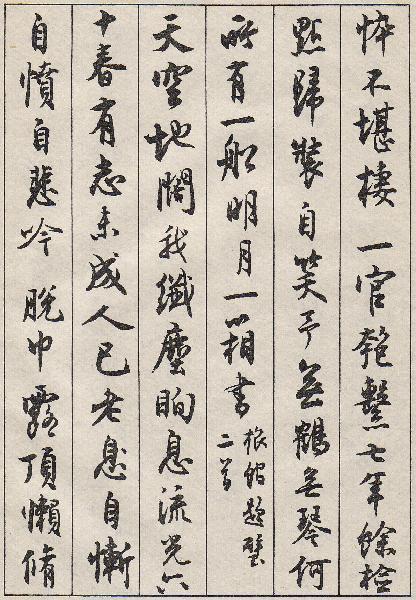 悴不堪棲一官匏繫七年餘檢
點歸裝自笑予無鶴無琴何
所有一船明月一箱書旅館題壁
二首
天空地闊我纖塵眴息流光六
十春有志未成人已老息自慚
自憤自悲吟脫巾露頂懶脩